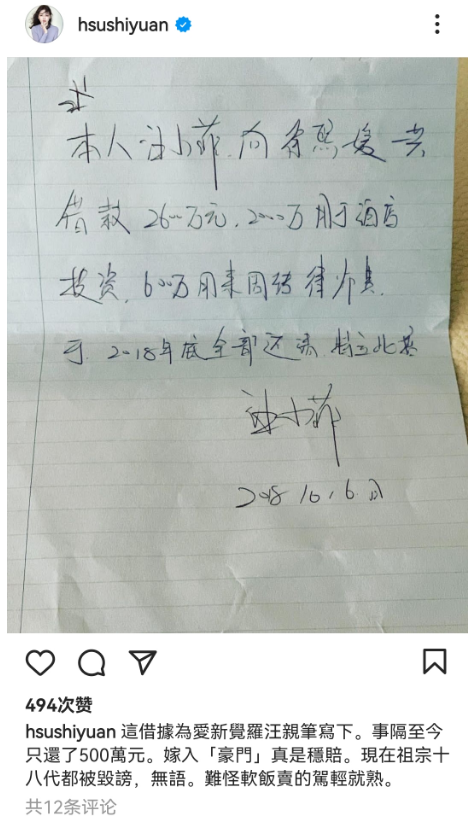 hsushiyuan
本人汪小菲,向徐熙媛共
借款2600万元,2000万用于酒店
投资,600万用来周转
于2018年底全部还清,特立此据
汪小菲
2018 10,6.日
494次赞
hsushiyuan 這借據為愛新覺羅汪親筆寫下。事隔至今
只還了500萬元。嫁入「豪門」真是穩賠。現在祖宗十
八代都被毀謗，無語。難怪軟飯賣的駕輕就熟。
共12条评论